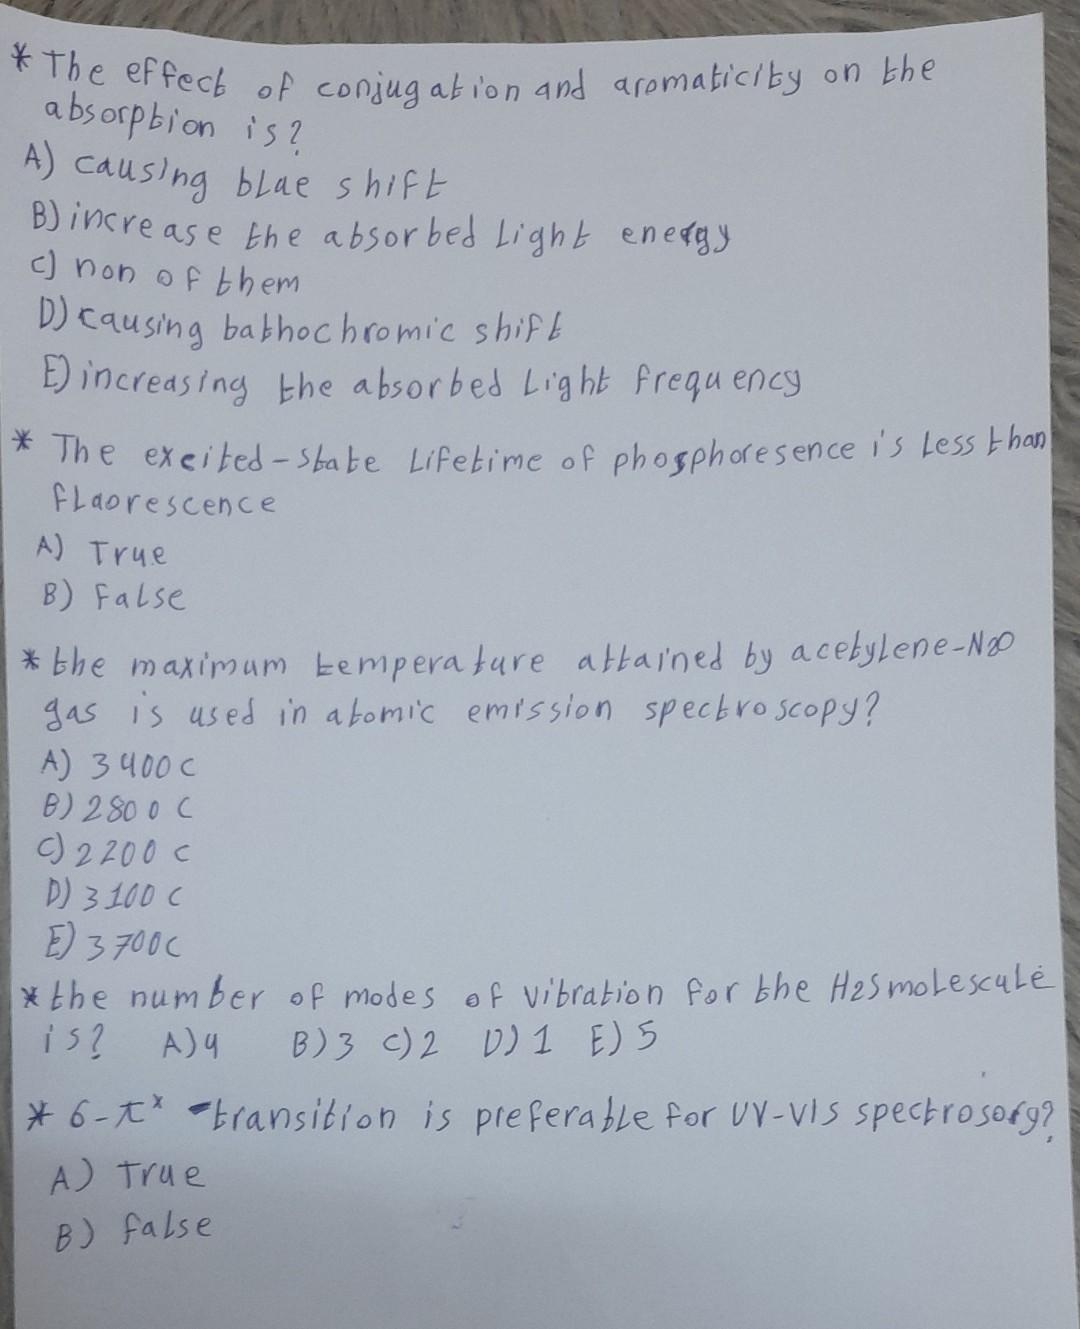 * The effect of conjugation and aromaticity on the
absorption is?
A) causing blue shift
B) increase the absorbed Light energy
C) non of them
D) causing bathochromic shift
E) increasing the absorbed Light frequency
* The excited-state Lifetime of phosphoresence is Less than
fluorescence
A) True
B) False
* the maximum temperature attained by acetylene-N2O
gas is used in atomic emission spectroscopy?
A) 3400 C
B) 2800 C
C) 2200 C
D) 3100 C
E) 3700C
* the number of modes of vibration for the H2S molescule
is? A) 4 B) 3 C) 2 D) 1 E) 5
* б-π* -transition is preferable for UV-VIS spectrosorgy?
A) True
B) false